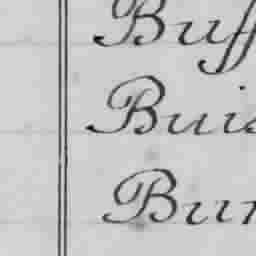 Buff
Buis
Bur